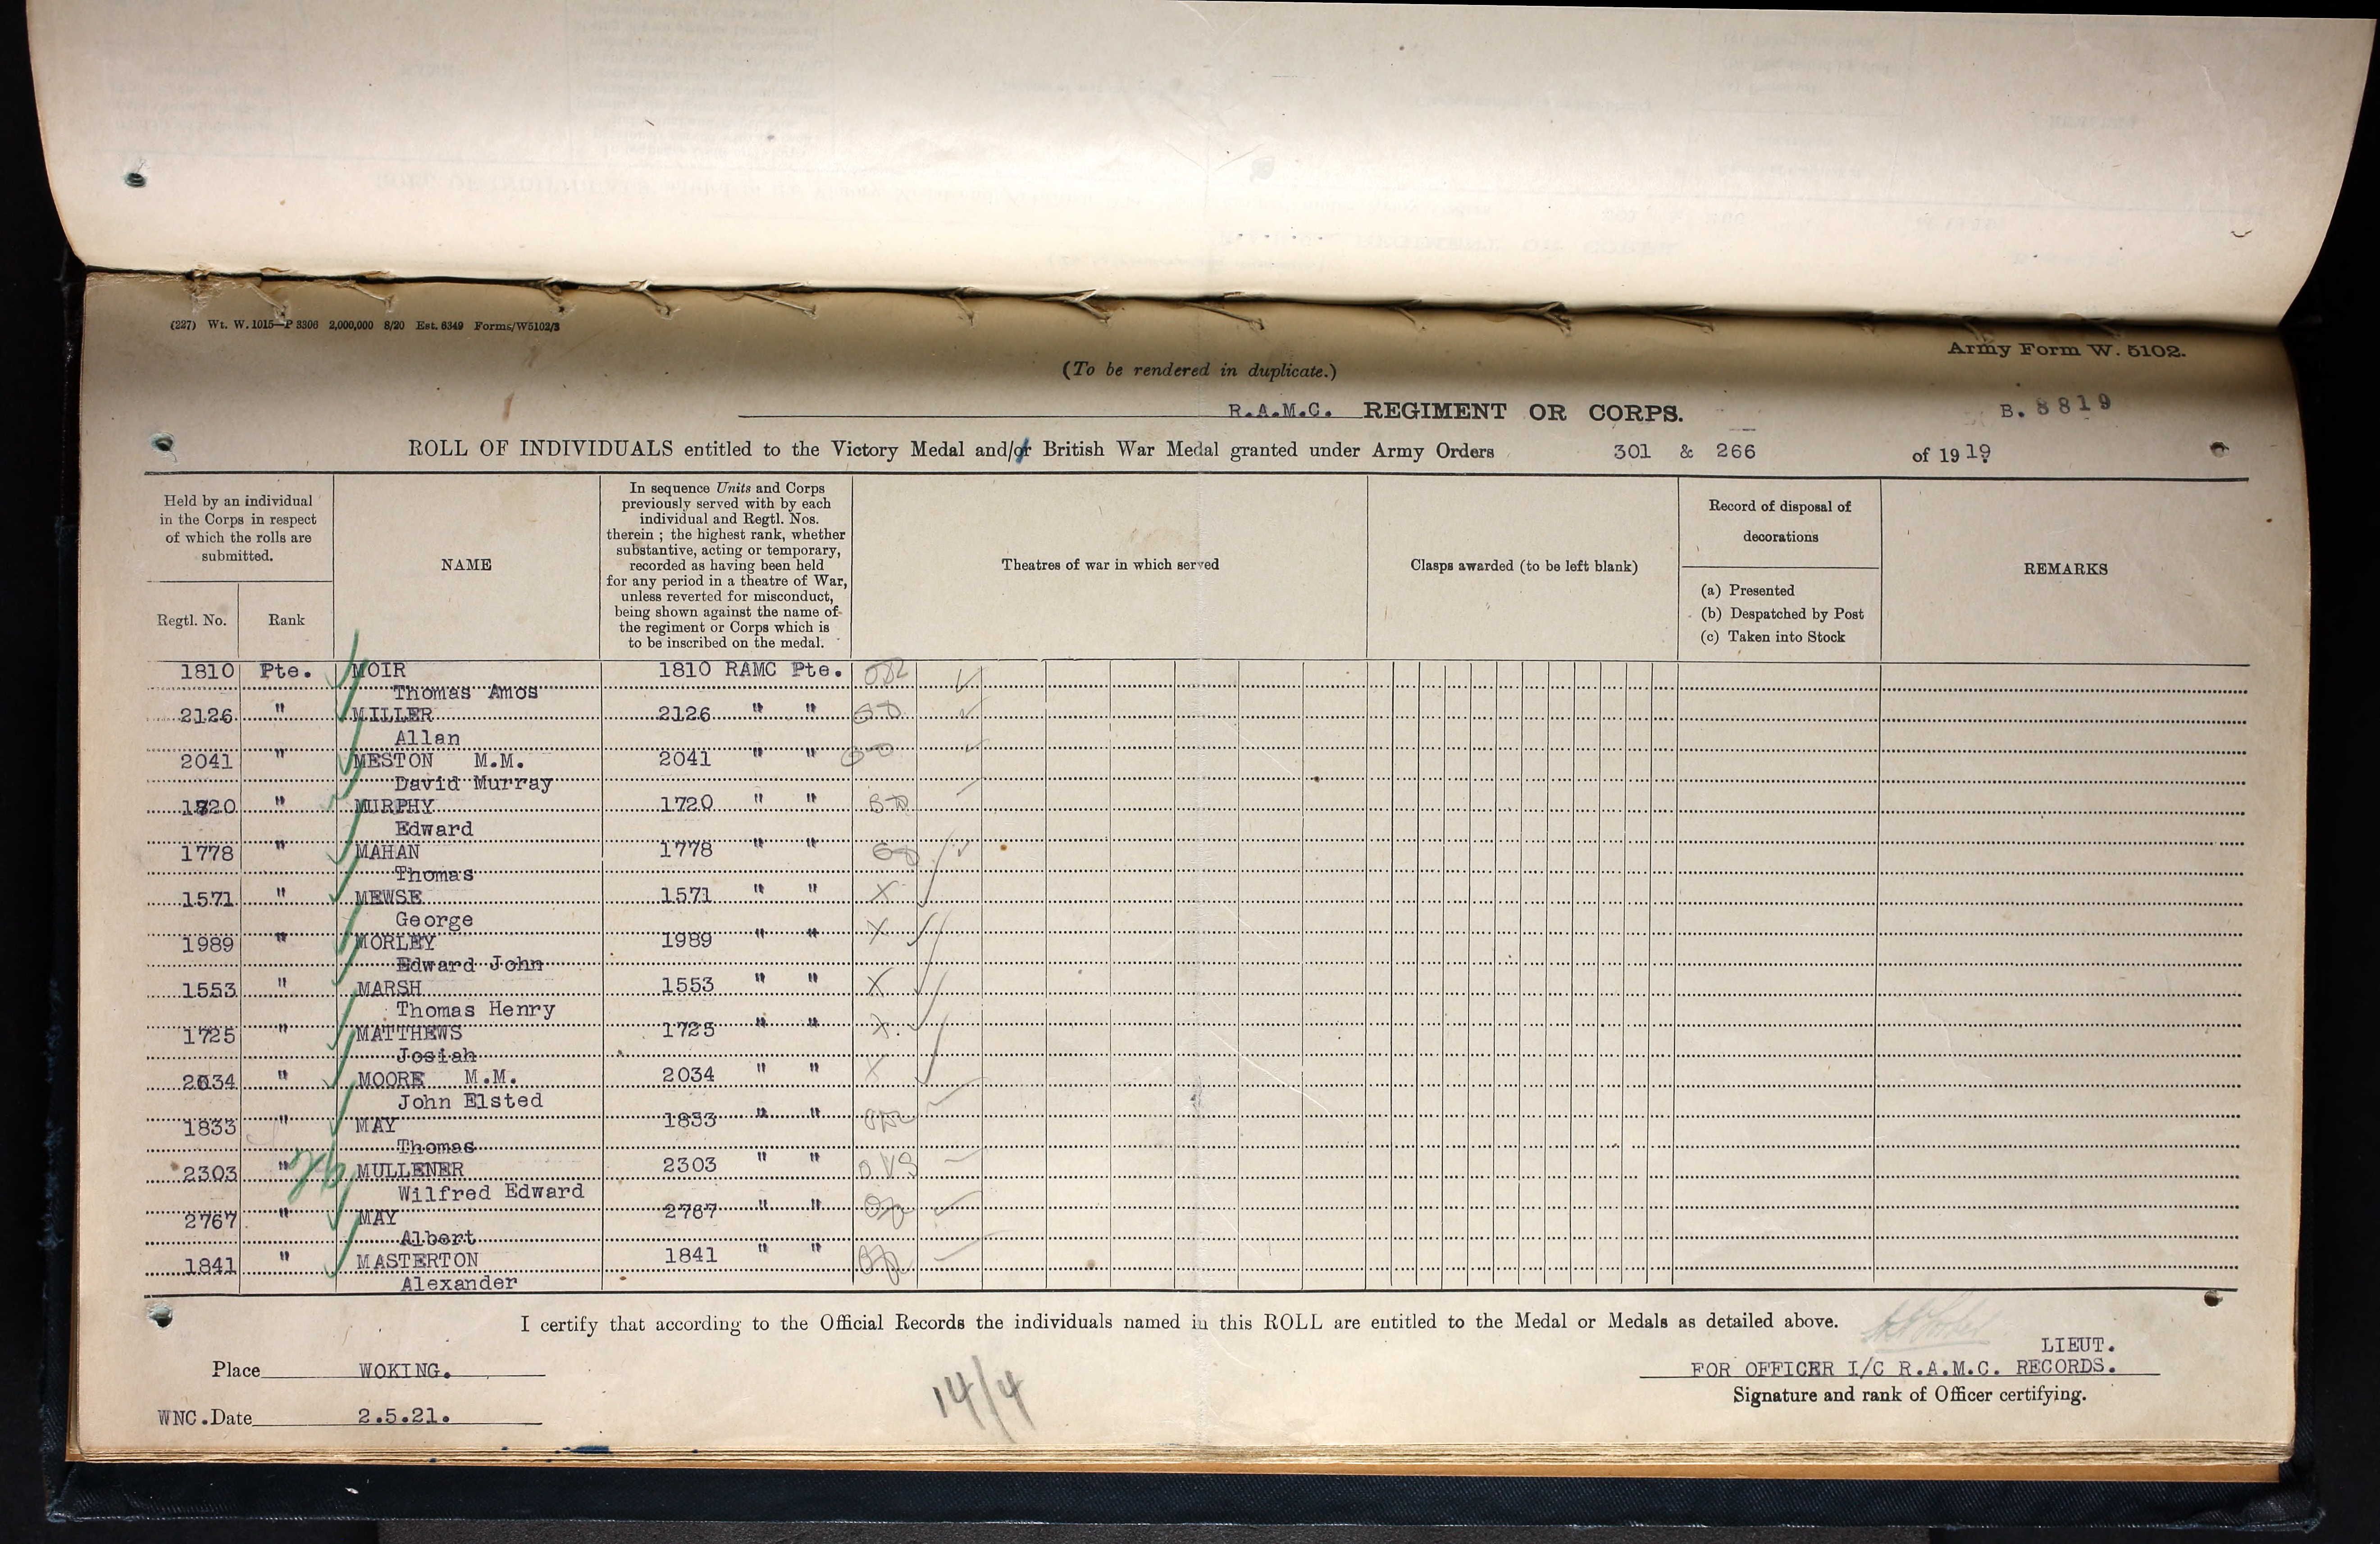 (227) Wt. W. 1015—P 3306 2,000,000 8/20 Est. 6349 Forms/W5102/3
Army Form W. 5102.
(To be rendered in duplicate.)
R.A.M.C. REGIMENT OR CORPS.
B. 8819
ROLL OF INDIVIDUALS entitled to the Victory Medal and/or British War Medal granted under Army Orders 301 & 266 of 1919
Held by an individual
in the Corps in respect
of which the rolls are
submitted.
Regtl. No. Rank
NAME
In sequence Units and Corps
previously served with by each
individual and Regtl. Nos.
therein ; the highest rank, whether
substantive, acting or temporary,
recorded as having been held
for any period in a theatre of War,
unless reverted for misconduct,
being shown against the name of
the regiment or Corps which is
to be inscribed on the medal.
Theatres of war in which served
Clasps awarded (to be left blank)
Record of disposal of
decorations
(a) Presented
(b) Despatched by Post
(c) Taken into Stock
REMARKS
1810 Pte. MOIR 1810 RAMC Pte.
Thomas Amos
2126 " MILLER 2126 " "
Allan
2041 " MESTON M.M. 2041 " "
David Murray
1720 " MURPHY 1720 " "
Edward
1778 " MAHAN 1778 " "
Thomas
1571 " MEWSE 1571 " " X
George
1989 " MORLEY 1989 " " X
Edward John
1553 " MARSH 1553 " " X
Thomas Henry
1725 " MATTHEWS 1725 " " X
Josiah
2034 " MOORE M.M. 2034 " " X
John Elsted
1833 " MAY 1833 " "
Thomas
2303 " MULLENER 2303 " "
Wilfred Edward
2767 " MAY 2767 " "
Albert
1841 " MASTERTON 1841 " "
Alexander
I certify that according to the Official Records the individuals named in this ROLL are entitled to the Medal or Medals as detailed above.
LIEUT.
Place WOKING.
FOR OFFICER I/C R.A.M.C. RECORDS.
Signature and rank of Officer certifying.
WNC. Date 2.5.21.
14/4